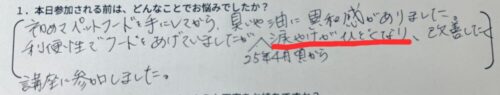 1. 本日参加される前は、どんなことでお悩みでしたか?
初めてペットフードを手にしてから、臭いや油に異和感がありました。
利便性でフードをあげていましたが、涙やけがひどくなり、改善したく
25年4月頃から
講座に参加しました。